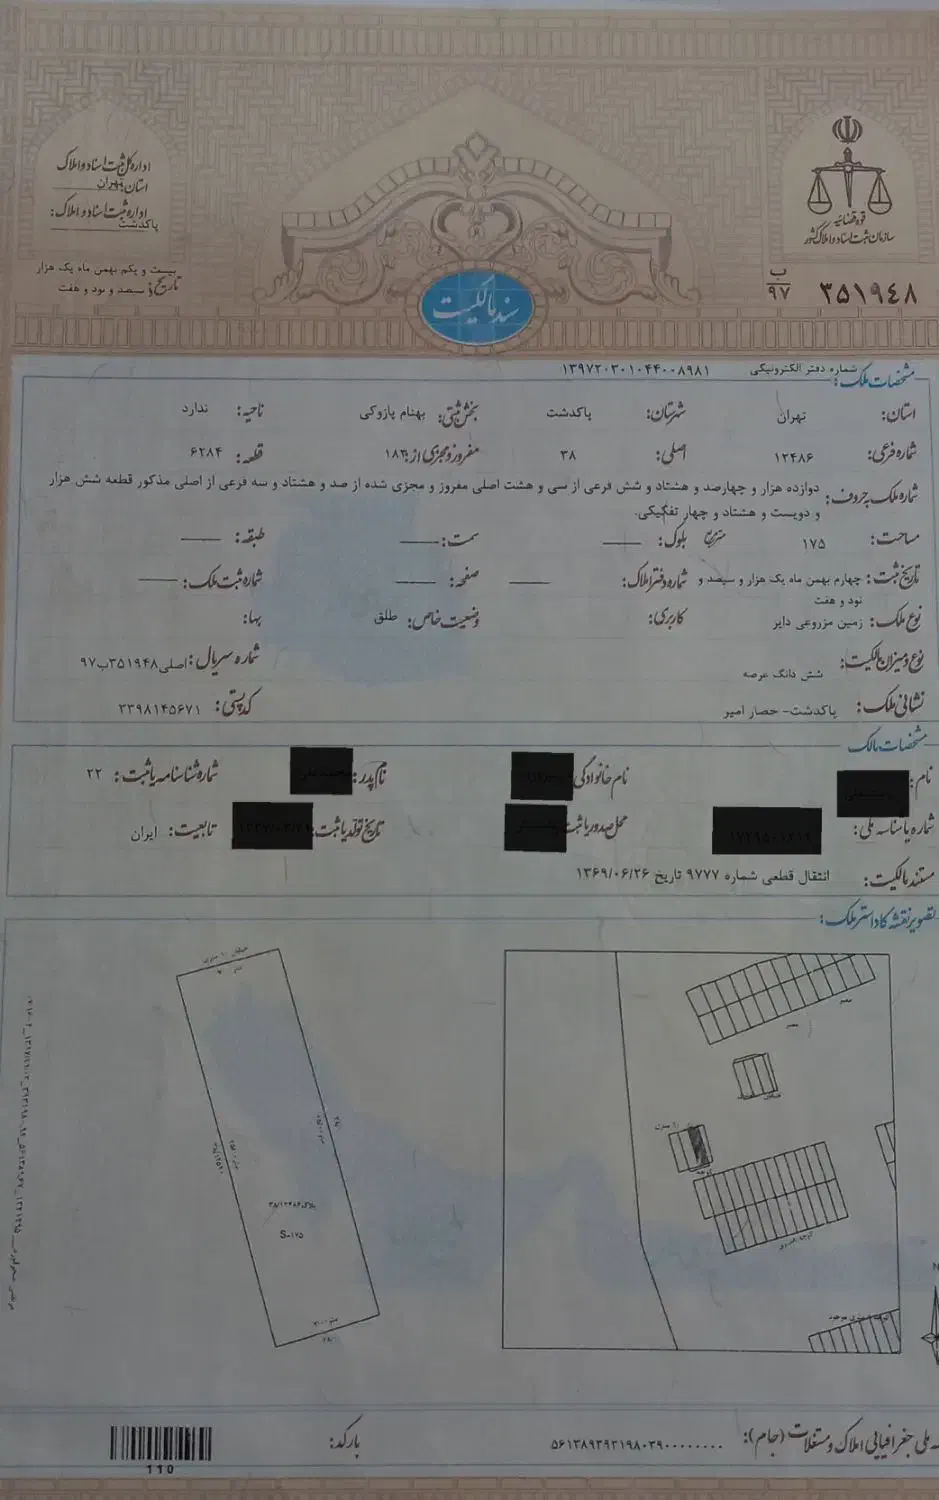 قوه قضائیه
سازمان ثبت اسناد و املاک کشور
ب
۹۷
۳۵۱۹۴۸
اداره کل ثبت اسناد و املاک
استان: تهران
اداره ثبت اسناد و املاک:
پاکدشت
تاریخ: بیست و یکم بهمن ماه یک هزار
و سیصد و نود و هفت
سند مالکیت
مشخصات ملک: شماره دفتر الکترونیکی ۱۳۹۷۲۰۳۰۱۰۴۴۰۰۸۹۸۱
استان: تهران شهرستان: پاکدشت بخش ثبتی: بهنام پازوکی ناحیه: ندارد
شماره فرعی: ۱۲۴۸۶ اصلی: ۳۸ مفروز و مجزی از: ۱۸۳ قطعه: ۶۲۸۴
شماره ملک به حروف: دوازده هزار و چهارصد و هشتاد و شش فرعی از سی و هشت اصلی مفروز و مجزی شده از صد و هشتاد و سه فرعی از اصلی مذکور قطعه شش هزار
و دویست و هشتاد و چهار تفکیکی.
مساحت: ۱۷۵ مترمربع بلوک: سمت: طبقه:
تاریخ ثبت: چهارم بهمن ماه یک هزار و سیصد و شماره دفتر املاک: صفحه: شماره ثبت ملک:
نود و هفت
نوع ملک: زمین مزروعی دایر کاربری: وضعیت خاص: طلق بها:
نوع و میزان مالکیت: شش دانگ عرصه شماره سریال: اصلی۳۵۱۹۴۸ب۹۷
نشانی ملک: پاکدشت- حصار امیر کدپستی: ۳۳۹۸۱۴۵۶۷۱
مشخصات مالک
نام: نام خانوادگی: نام پدر: شماره شناسنامه یا ثبت: ۲۲
شماره یا شناسه ملی: محل صدور یا ثبت: تاریخ تولد یا ثبت: تابعیت: ایران
مستند مالکیت: انتقال قطعی شماره ۹۷۷۷ تاریخ ۱۳۶۹/۰۶/۲۶
تصویر نقشه کاداستر ملک:
پلاک ۳۸/۱۲۴۸۶
S=۱۷۵
N
ملی جغرافیایی املاک و مستغلات (جام): ۵۶۱۳۸۹۳۹۲۱۹۸۰۳۹۰۰۰۰۰۰۰۰۰ بارکد:
110